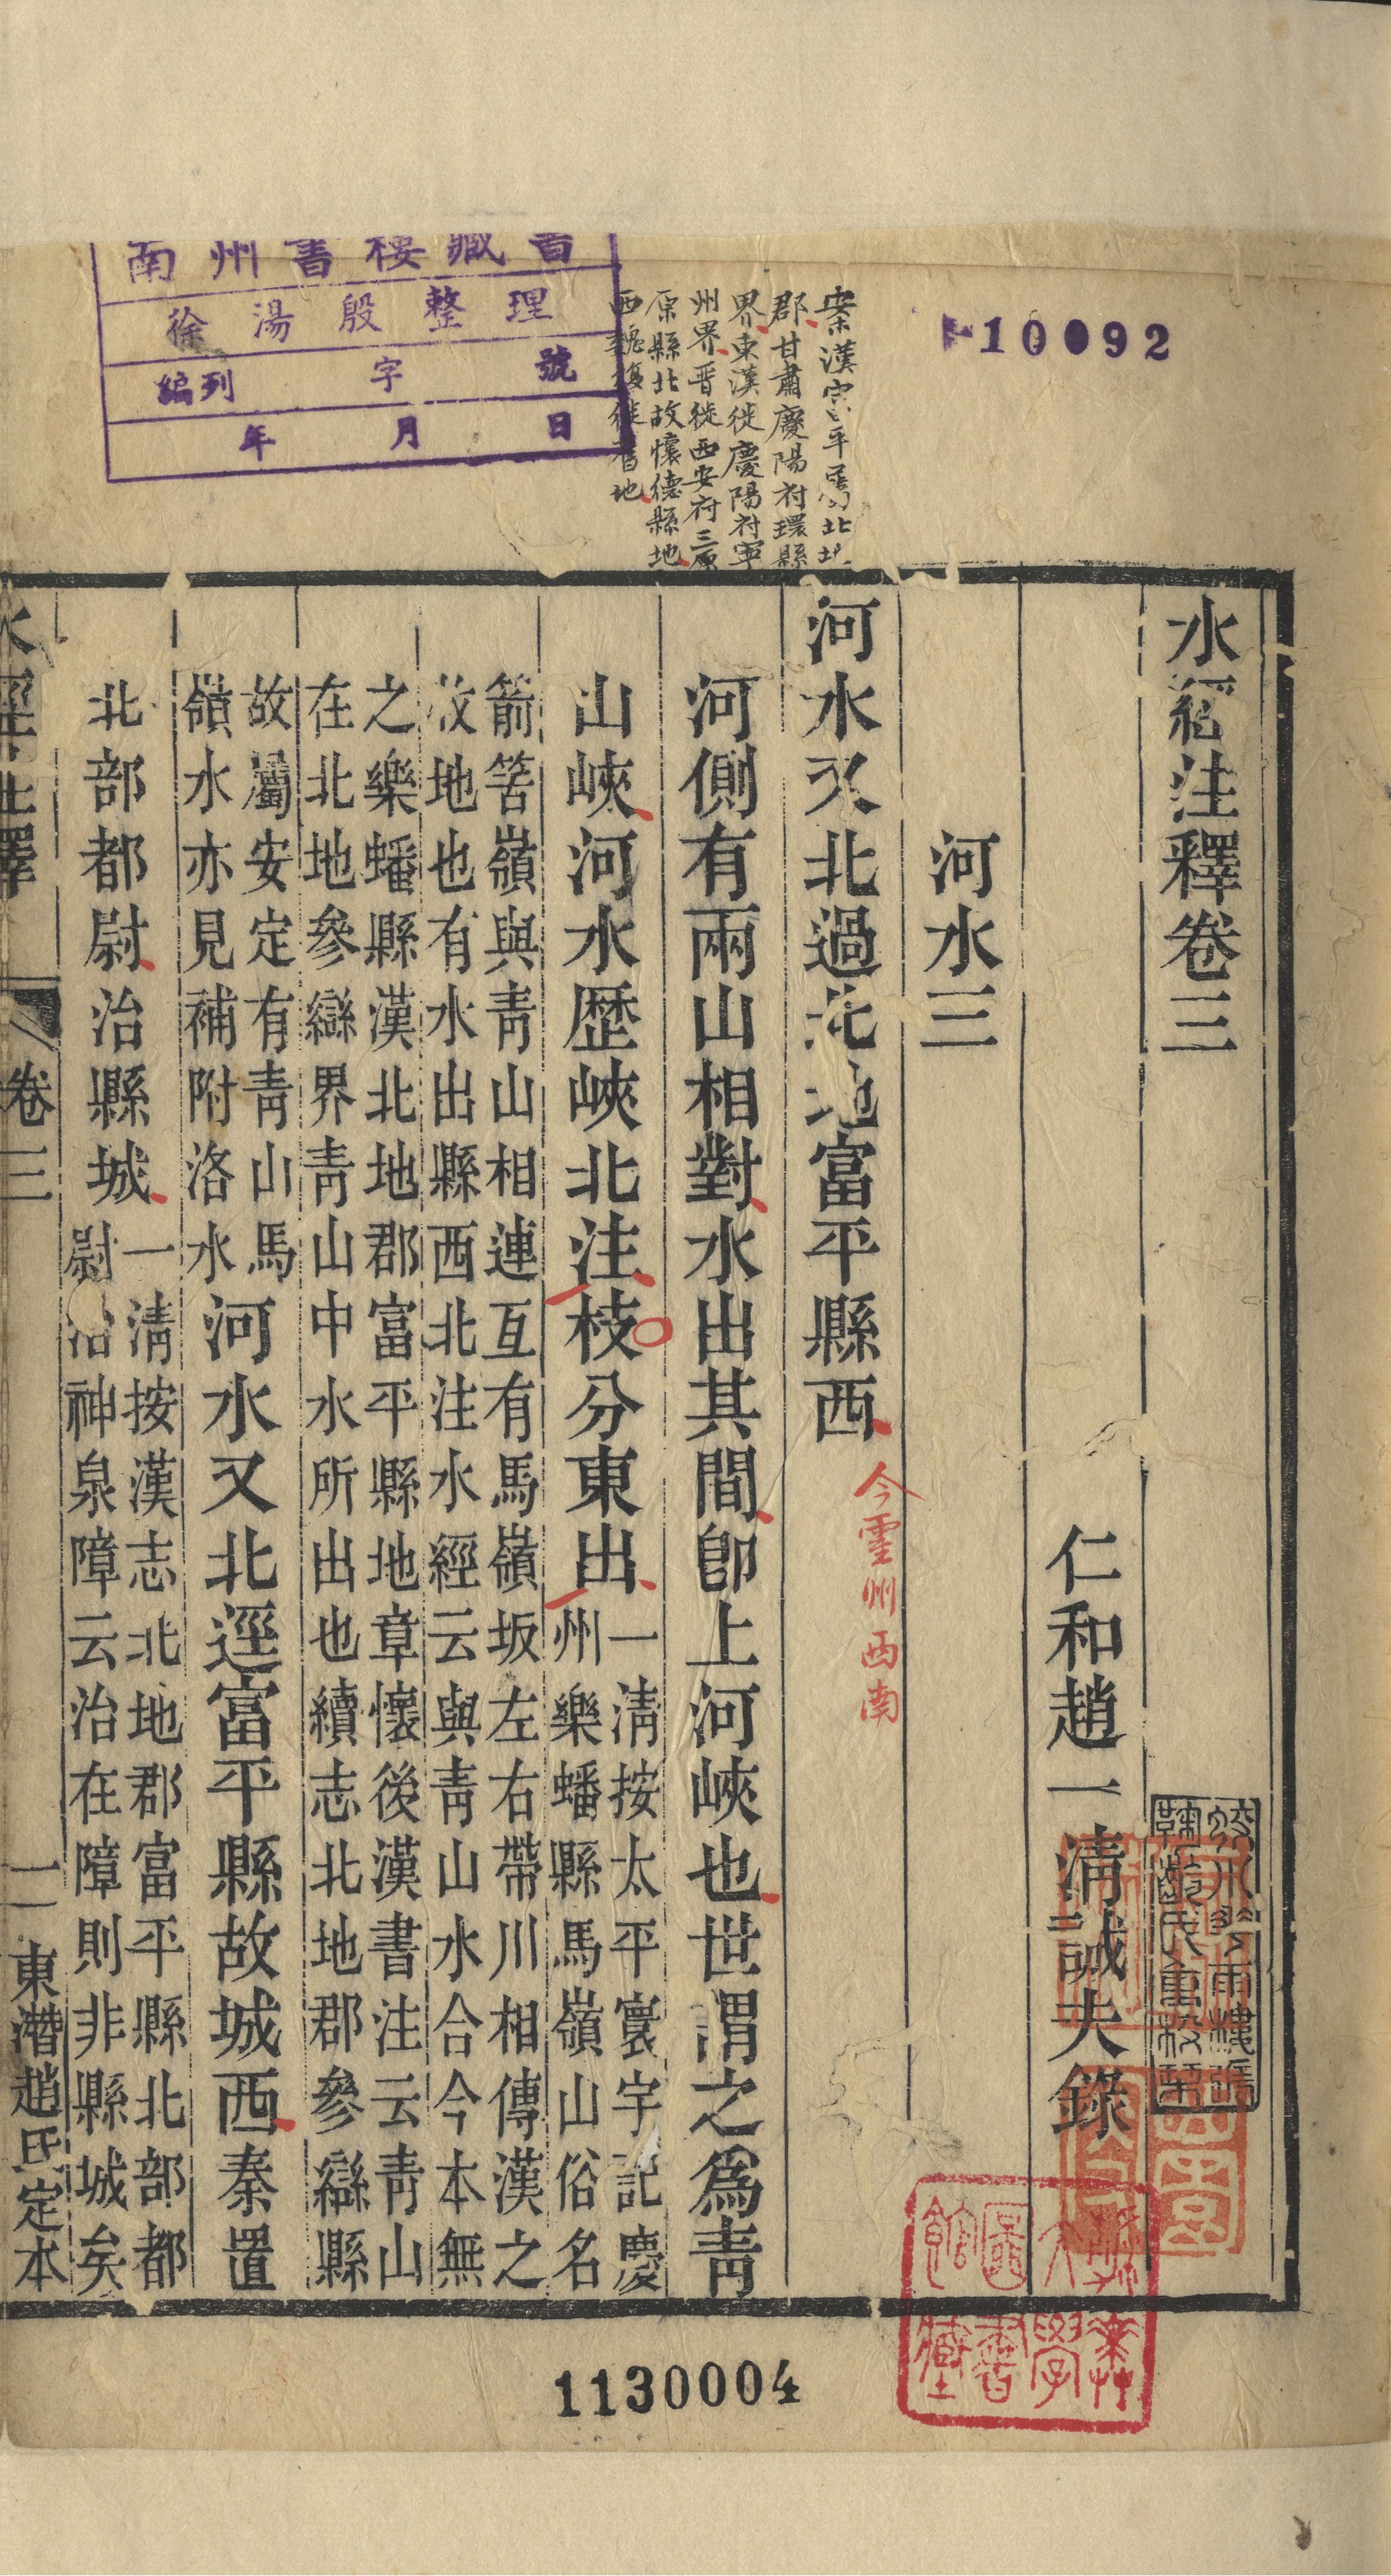 南州書樓藏書
徐湯殷整理
編列 字 號
年 月 日
10092
案漢富平屬北地
郡甘肅慶陽府環縣
界東漢徙慶陽府寧
州界晋徙西安府三原
原縣北故懷德縣地
西魏復徙舊地
水經注釋卷三
仁和趙一清誠夫錄
河水三
河水又北過北地富平縣西
今靈州西南
河側有兩山相對水出其間卽上河峽也世謂之爲靑
山峽河水歷峽北注枝分東出一清按太平寰宇記慶
州樂蟠縣馬嶺山俗名
箭筈嶺與靑山相連亙有馬嶺坂左右帶川相傳漢之
故地也有水出縣西北注水經云與靑山水合今本無
之樂蟠縣漢北地郡富平縣地章懷後漢書注云靑山
在北地參䜌界靑山中水所出也續志北地郡參䜌縣
故屬安定有靑山馬
嶺水亦見補附洛水河水又北逕富平縣故城西秦置
北部都尉治縣城一清按漢志北地郡富平縣北部都
尉治神泉障云治在障則非縣城矣
水經注釋 卷三 一 東潛趙氏定本
1130004